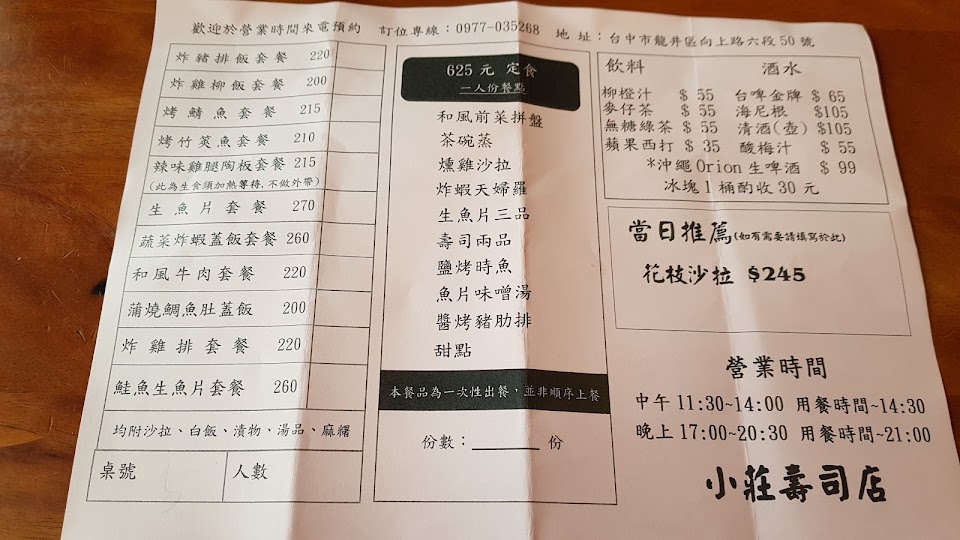 歡迎於營業時間來電預約 訂位專線：0977-035268 地 址：台中市龍井區向上路六段50號
炸豬排飯套餐 220
炸雞柳飯套餐 200
烤鯖魚套餐 215
烤竹筴魚套餐 210
辣味雞腿陶板套餐 215
(此為生食須加熱等待,不做外帶)
生魚片套餐 270
蔬菜炸蝦蓋飯套餐 260
和風牛肉套餐 220
蒲燒鯛魚肚蓋飯 200
炸雞排套餐 220
鮭魚生魚片套餐 260
均附沙拉、白飯、漬物、湯品、麻糬
桌號 人數
625元 定食
一人份餐點
和風前菜拼盤
茶碗蒸
燻雞沙拉
炸蝦天婦羅
生魚片三品
壽司兩品
鹽烤時魚
魚片味噌湯
醬烤豬肋排
甜點
本餐品為一次性出餐，並非順序上餐
份數：______ 份
飲料 酒水
柳橙汁 $ 55 台啤金牌 $ 65
麥仔茶 $ 55 海尼根 $105
無糖綠茶 $ 55 清酒(壺) $105
蘋果西打 $ 35 酸梅汁 $ 55
*沖繩Orion生啤酒 $ 99
冰塊1桶酌收30元
當日推薦(如有需要請填寫於此)
花枝沙拉 $245
營業時間
中午11:30~14:00 用餐時間~14:30
晚上17:00~20:30 用餐時間~21:00
小莊壽司店